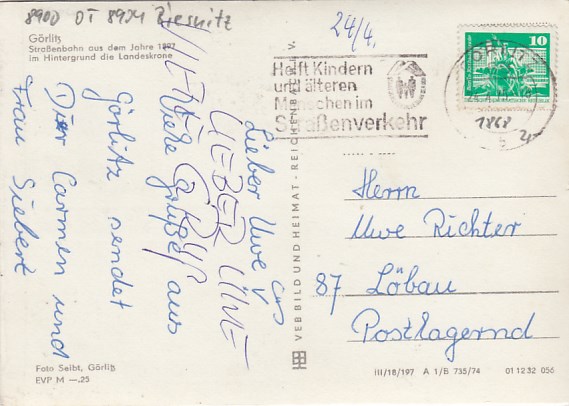 8900 OT 8904 Biesnitz
Görlitz
Straßenbahn aus dem Jahre 1897
im Hintergrund die Landeskrone
Lieber Uwe
Viele Grüße aus
Görlitz sendet
Dir Carmen und
Frau Siebert
LIEBER UWE
24/4.
Helft Kindern
und älteren
Menschen im
Straßenverkehr
10
1868
b
VEB BILD UND HEIMAT · REICHENBACH i. V.
Herrn
Uwe Richter
87 Löbau
Postlagernd
Foto Seibt, Görlitz
EVP M —.25
III/18/197 A 1/B 735/74 01 12 32 056